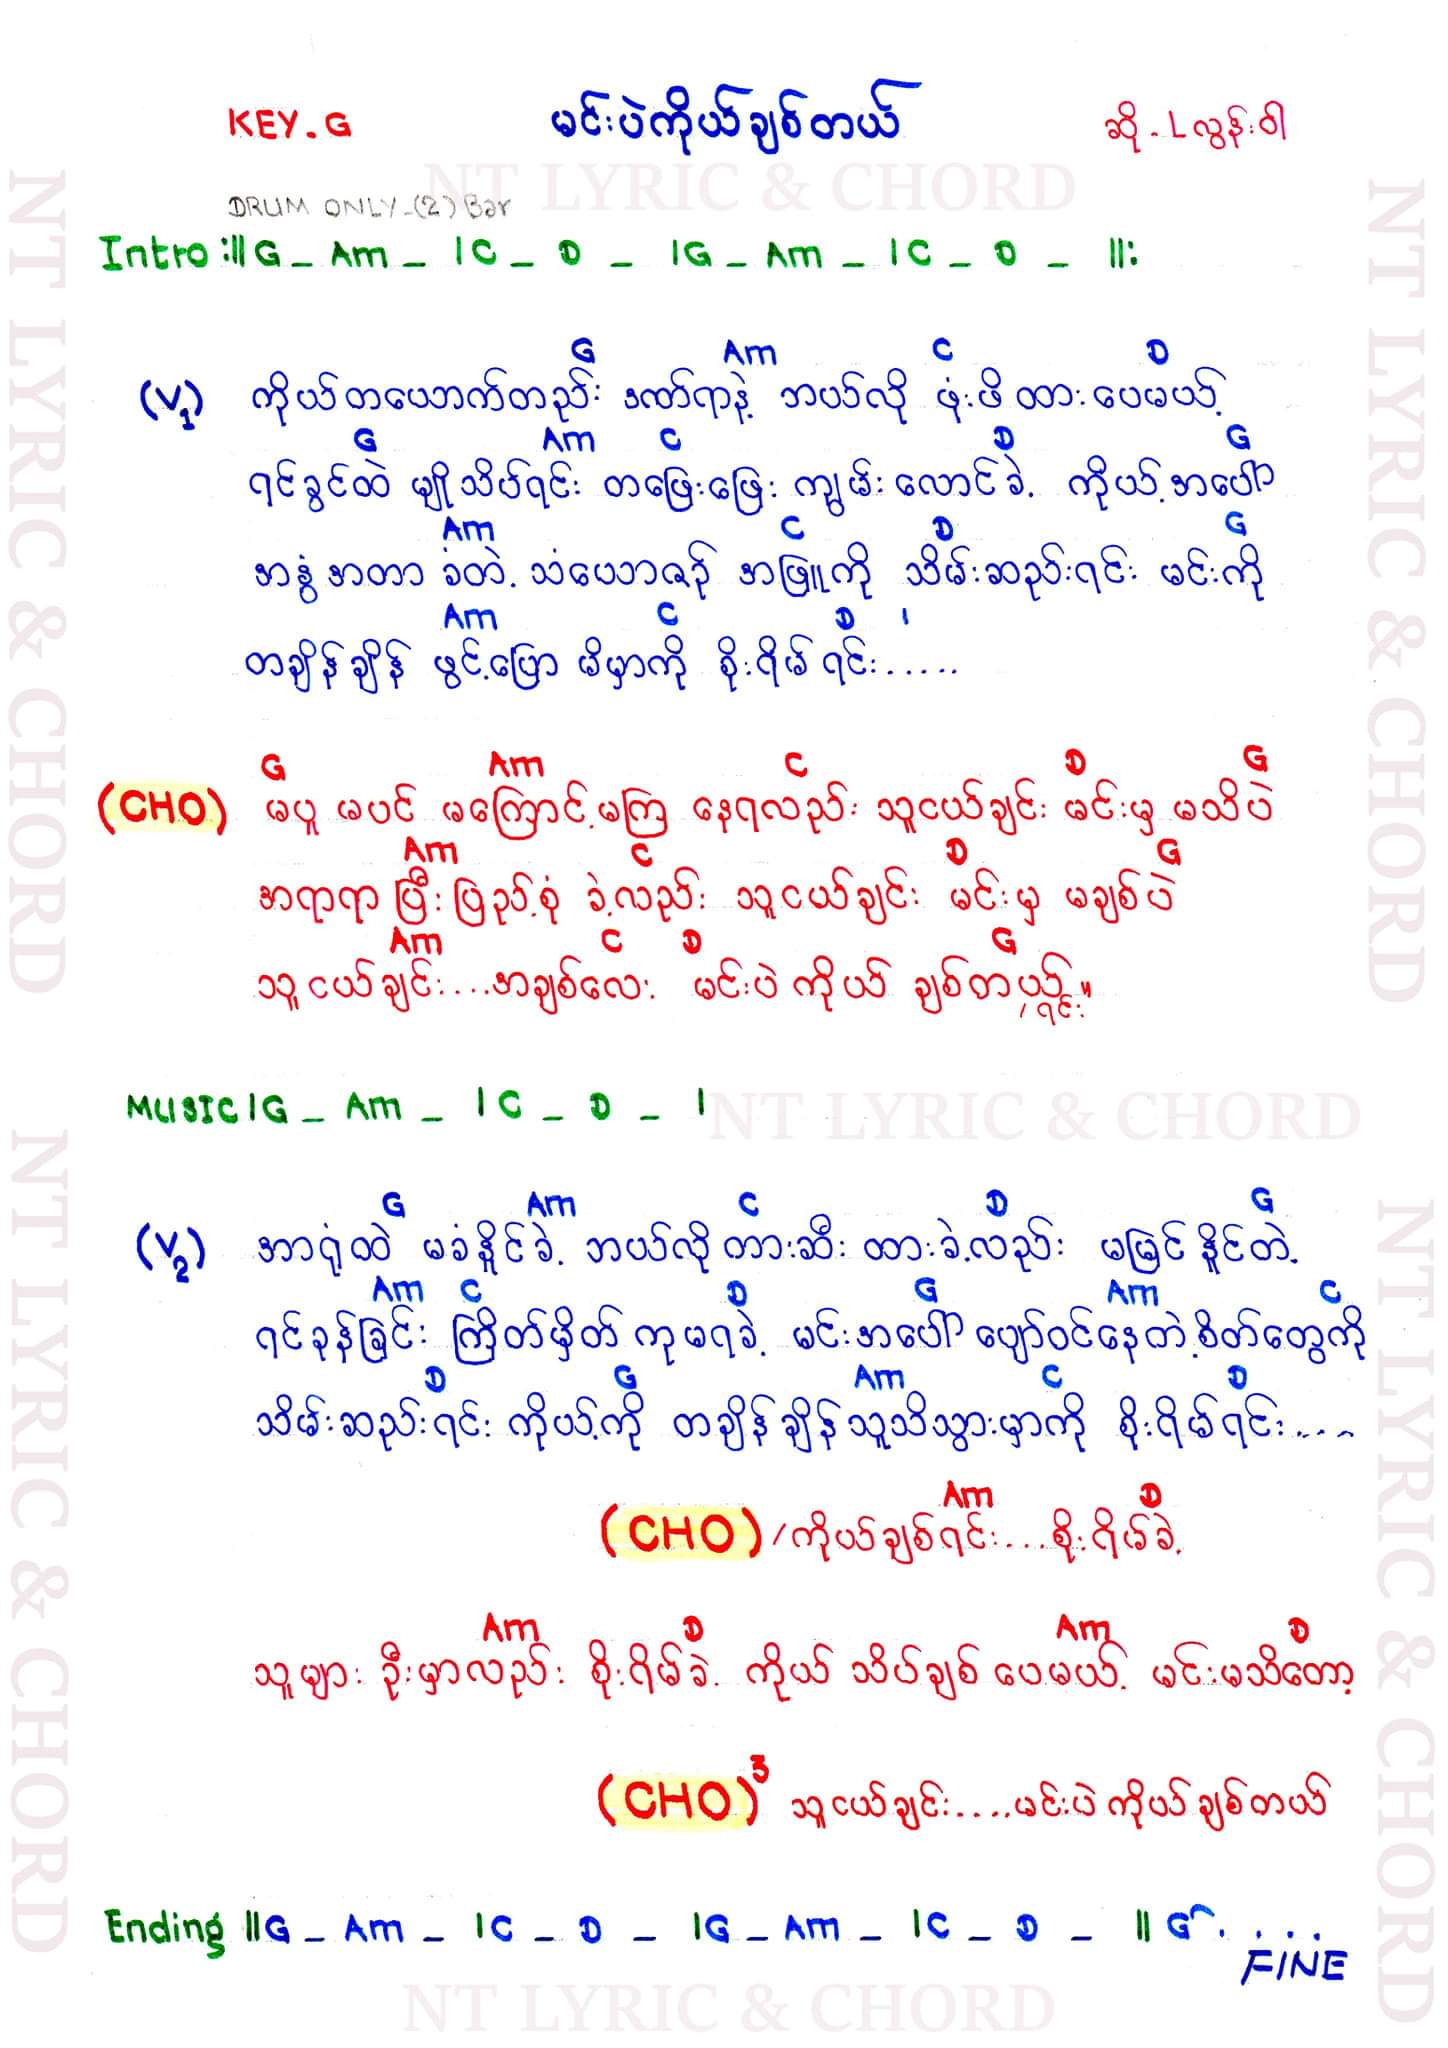 KEY.G မင်းပဲကိုယ်ချစ်တယ် ဆို - L လွန်းဝါ
NT LYRIC & CHORD
DRUM ONLY-(2) Bar
Intro :||G _ Am _ |C _ D _ |G _ Am _ |C _ D _ ||:
G Am C D
(V1) ကိုယ်တယောက်တည်း ဒဏ်ရာနဲ့ ဘယ်လို ဖုံးဖိ ထားပေမယ့်
G Am C D G
ရင်ခွင်ထဲ မျိုသိပ်ရင်း တဖြေးဖြေး ကျွမ်းလောင်ခဲ့ ကိုယ့်အပေါ်
Am C D G
အနွံအတာ ခံတဲ့ သံယောဇဉ် အဖြူကို သိမ်းဆည်းရင်း မင်းကို
Am C D
တချိန်ချိန် ဖွင့်ပြော မိမှာကို စိုးရိမ်ရင်း.....
G Am C D G
(CHO) မပူ မပင် မကြောင့်မကြ နေရလည်း သူငယ်ချင်း မင်းမှ မသိပဲ
Am C D G
အရာရာ ပြီးပြည့်စုံ ခဲ့လည်း သူငယ်ချင်း မင်းမှ မချစ်ပဲ
Am C D G
သူငယ်ချင်း...အချစ်လေး မင်းပဲ ကိုယ် ချစ်တယ်"
/ရင်း
MUSIC |G _ Am _ |C _ D _ |
NT LYRIC & CHORD
G Am C D G
(V2) အာရုံထဲ မခံနိူင်ခဲ့ ဘယ်လို တားဆီး ထားခဲ့လည်း မမြင်နိူင်တဲ့
Am C D G Am C
ရင်ခုန်ခြင်း ကြိတ်မှိတ် ကုမရခဲ့ မင်းအပေါ် ပျော်ဝင်နေတဲ့ စိတ်တွေကို
D G Am C D
သိမ်းဆည်းရင်း ကိုယ့်ကို တချိန်ချိန် သူသိသွားမှာကို စိုးရိမ်ရင်း....
Am D
(CHO) /ကိုယ်ချစ်ရင်း...စိုးရိမ်ခဲ့
Am D Am D
သူများ ဦးမှာလည်း စိုးရိမ်ခဲ့ ကိုယ် သိပ်ချစ် ပေမယ့် မင်းမသိတော့
(CHO)3 သူငယ်ချင်း....မင်းပဲ ကိုယ်ချစ်တယ်
Ending ||G _ Am _ |C _ D _ |G _ Am _ |C _ D _ || G . . . .
FINE
NT LYRIC & CHORD
NT LYRIC & CHORD
NT LYRIC & CHORD
NT LYRIC & CHORD
NT LYRIC & CHORD